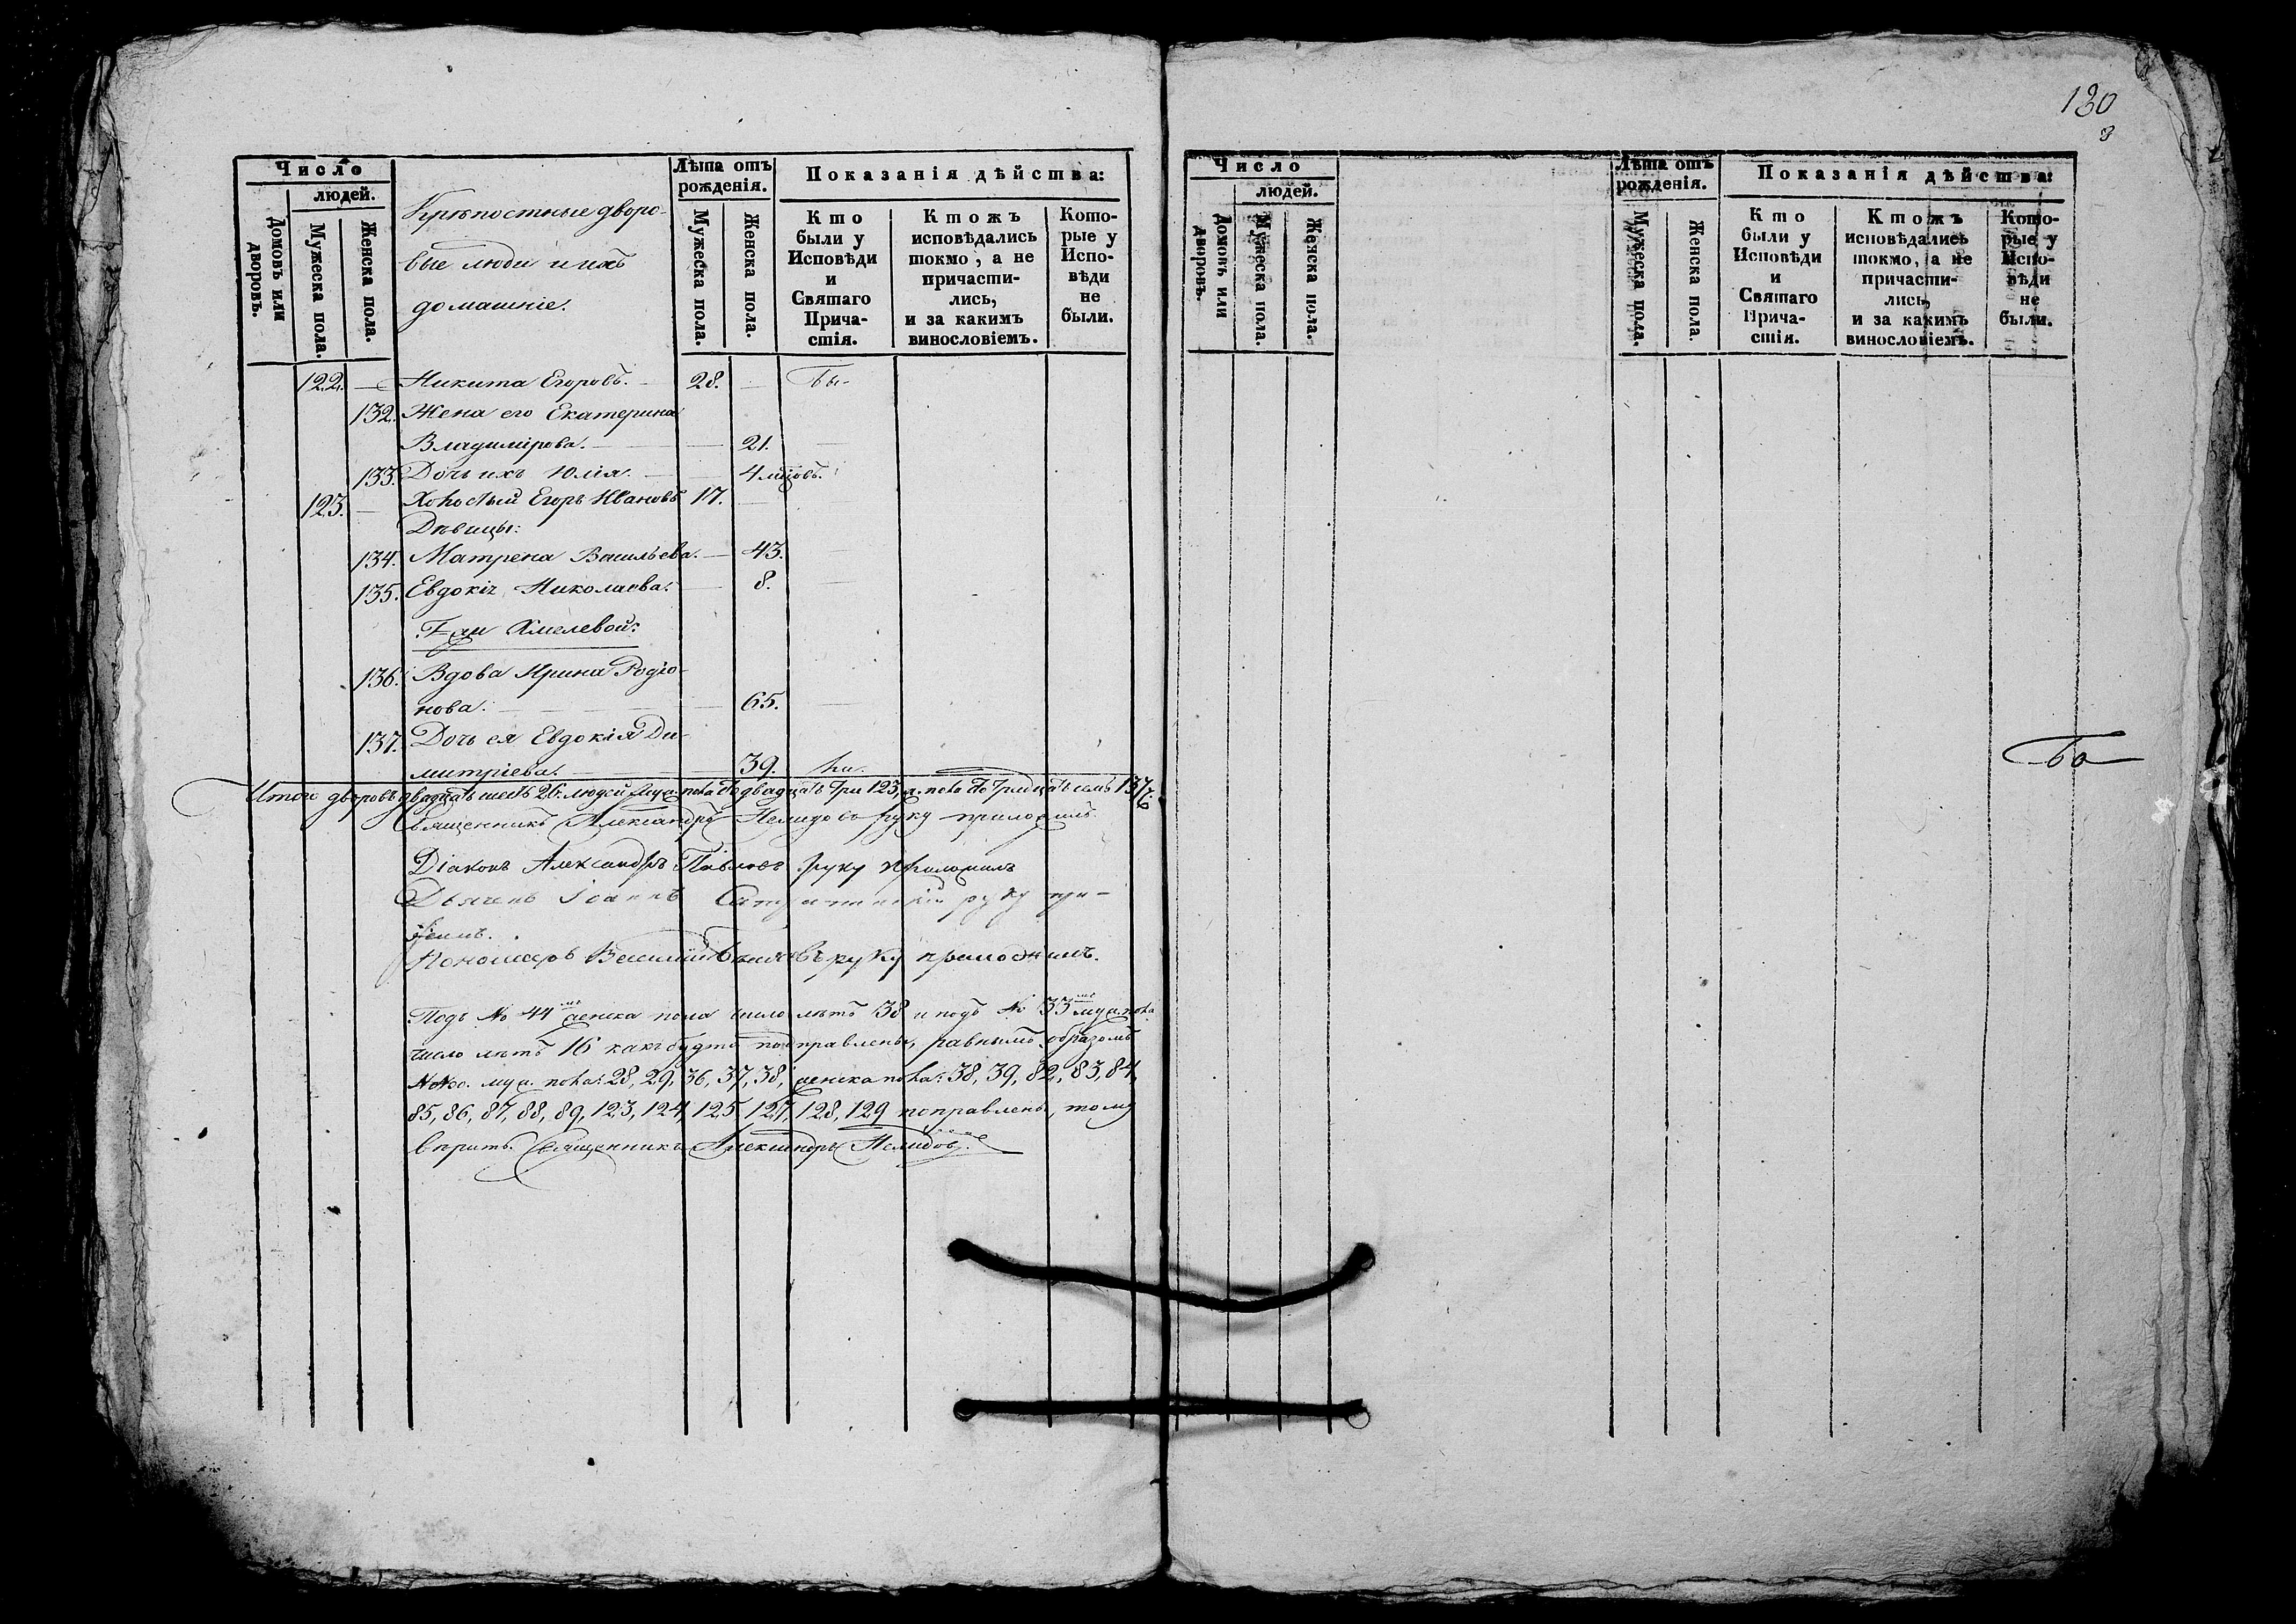 130
3
Число
людей.
Домовъ или дворовъ.
Мужеска пола.
Женска пола.
Крѣпостные дворо-
вые люди и ихъ
домашніе.
Лѣта отъ рожденія.
Мужеска пола.
Женска пола.
Показанія дѣйства:
Кто были у Исповѣди и Святаго Прича-стія.
Ктожъ исповѣдались токмо, а не причасти-лись, и за какимъ винословіемъ.
Кото-рые у Испо-вѣди не были.
122. — Никита Егоровъ. — 28. — бы-
132. Жена его Екатерина
Владимірова. — 21. —
133. Дочь ихъ Юлія. — 4 мцовъ.
123. — Холостый Егоръ Ивановъ 17. —
Дѣвицы:
134. Матрена Васильева. — 43. —
135. Евдокія Николаева. — 8. —
Хмелевой:
136. Вдова Ирина Родіо-
нова. — 65. —
137. Дочь ея Евдокія Ди-
митріева. — 39. ли.
Итого дворовъ двадцать шесть 26. людей муж. пола сто двадцать три 123, ж. пола сто тридцать семь 137.
Священникъ Александръ Нелидовъ руку приложилъ
Діаконъ Александръ Павловъ руку приложилъ
Дьячекъ Іоаннъ руку при-
Пономарь Василій руку приложилъ.
Подъ № 44мъ женска пола число лѣтъ 38 и подъ № 33мъ муж. пола
число лѣтъ 16 какъ будто поправлены, равнымъ образомъ
№№о. муж. пола: 28, 29, 36, 37, 38, женска пола: 38, 39, 82, 83, 84,
85, 86, 87, 88, 89, 123, 124, 125, 127, 128, 129 поправлены, тому
вѣрить. Священникъ Александръ Нелидовъ.
Число
людей.
Домовъ или дворовъ.
Мужеска пола.
Женска пола.
Лѣта отъ рожденія.
Мужеска пола.
Женска пола.
Показанія дѣйства:
Кто были у Исповѣди и Святаго Прича-стія.
Ктожъ исповѣдались токмо, а не причасти-лись, и за какимъ винословіемъ.
Кото-рые у Испо-вѣди не были.